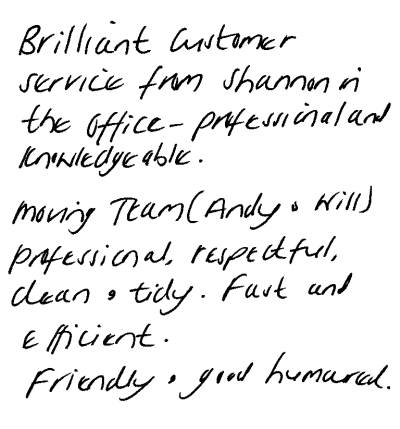 Brilliant Customer
service from Shannon in
the office - professional and
knowledgeable.
Moving Team (Andy & Will)
professional, respectful,
clean & tidy. Fast and
Efficient.
Friendly & good humoured.